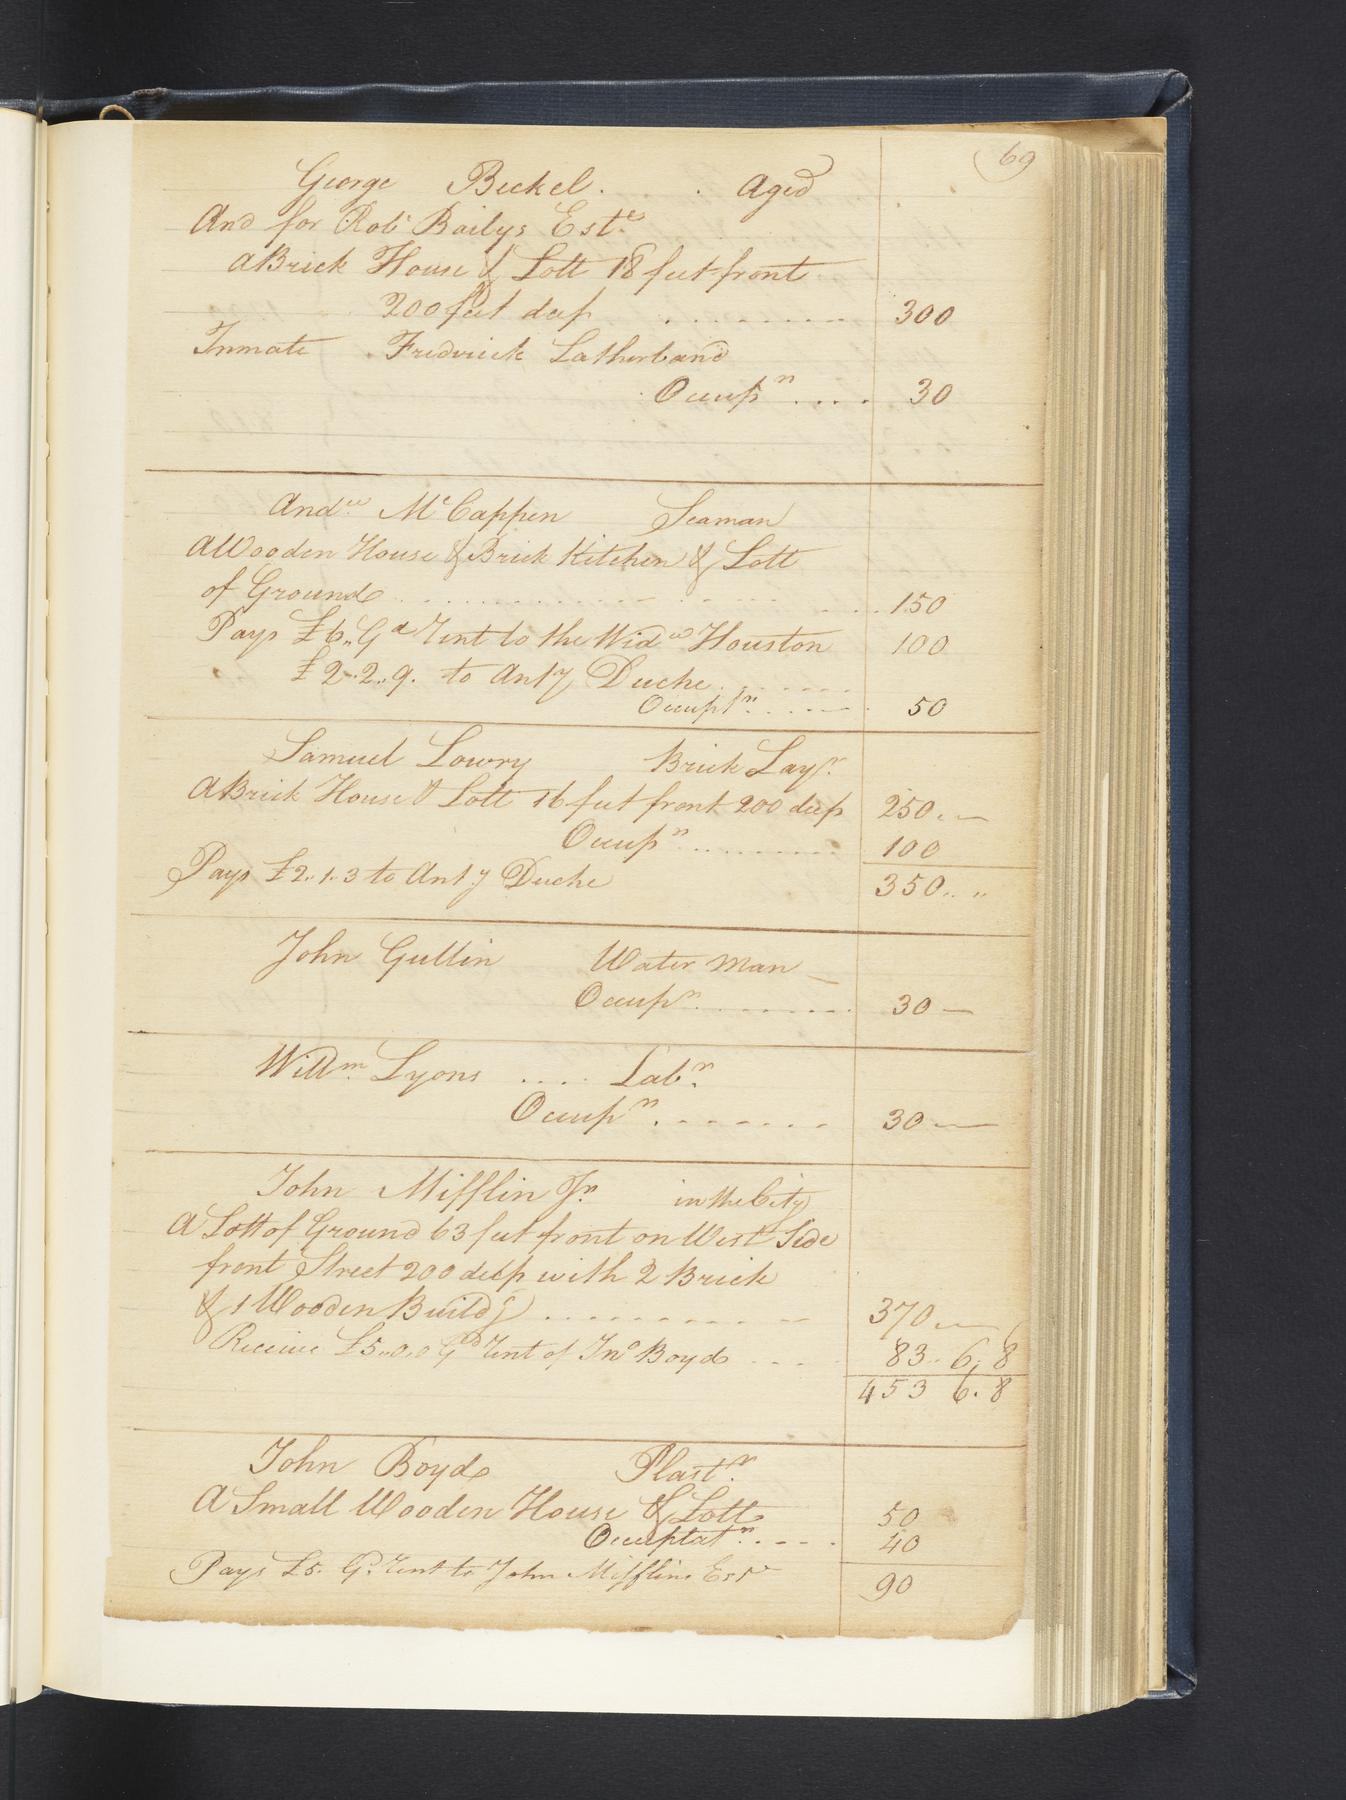 69
George Beckel . . Aged
And for Robt Bailys Este
A Brick House & Lott 18 feet front
200 feet deep . . . . . . . . 300
Inmate . Frederick Latherband
Occupn . . . . 30
Andw McCappen Seaman
A Wooden House & Brick Kitchen & Lott
of Ground . . . . . . . . . . . . 150
Pays £6,, Gd Rent to the Widw Houston 100
£2..2..9. to Anty Duche . . . . . .
Occuptn . . . . . 50
Samuel Lowry Brick Layr
A Brick House & Lott 16 feet front 200 deep 250. —
Occupn . . . . . . . . . 100
Pays £2..1..3 to Anty Duche 350.. ,,
John Gullin Water Man —
Occupn . . . . . . . . 30 —
Willm Lyons . . . . Labr
Occupn . . . . . . . 30 —
John Mifflin Jr in the City
A Lott of Ground 63 feet front on West Side
front Street 200 deep with 2 Brick
& 1 Wooden Buildg . . . . . . . . . . 370 —
Receive £5,,0,,0 Gd Rent of Jno Boyd . . . . 83.. 6, 8
453 6. 8
John Boyd Plastr
A Small Wooden House & Lott 50
Occuptatn . . . . . 40
Pays £5. Gd Rent to John Mifflin Esqr 90